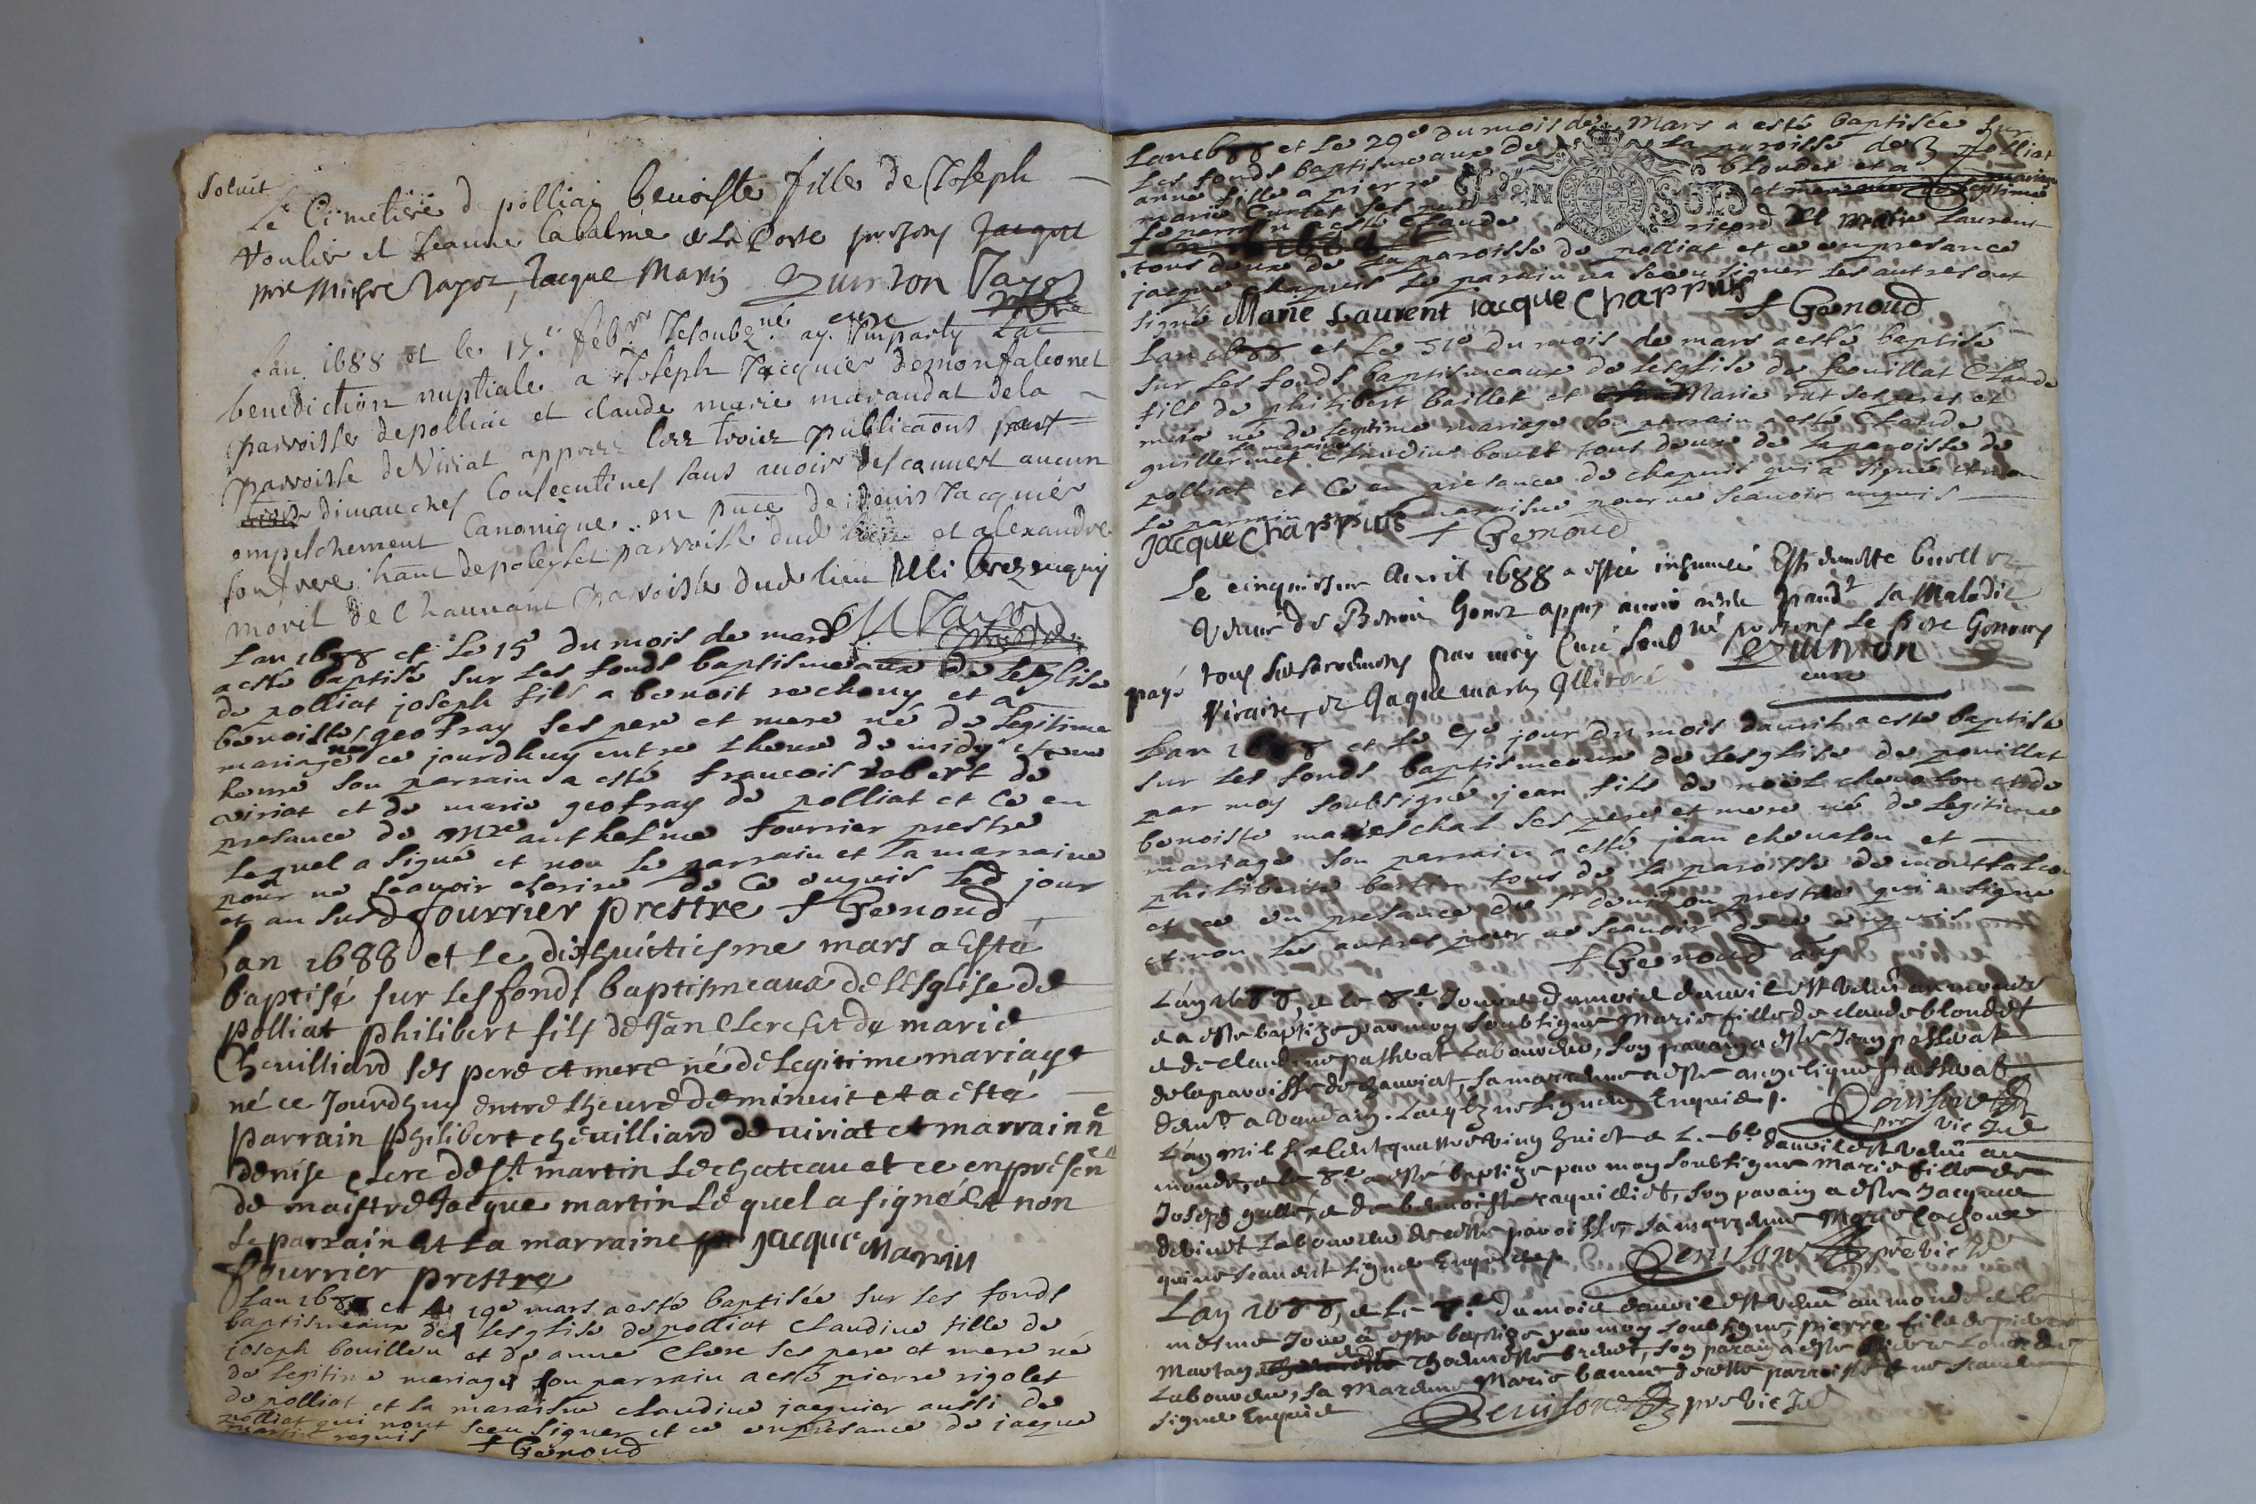 Soluit
Le Cimetiere de polliat benoiste fille de Joseph
et Jeanne labalme de la Coste presens Jacques
Michel Jayoz, Jacque Martin Quinson Jayoz
cure
Lan 1688 et le 17e febvr Je soubzné ay Imparty La
benediction nuptiale a Joseph Jacquier de monfalconet
parroisse de polliat et claude marie marandat de la
parroisse de Viriat appres les trois publicaons
dimanches Consecutives sans avoir descouvert aucun
empeschement Canonique en pnce de denis Jacquier
son frere parroisse dud et alexandre
morel de Chauvant parroisse dud lieu enquis
Jayoz
Lan 1688 et le 15 du mois de mars
a esté baptisé sur les fonds baptismeaux de lesglise
de polliat joseph fils a benoit rechouy et a
benoiste geofray ses pere et mere né de legitime
mariage ne ce jourdhuy entre lheure de midy et une
heure son parrain a esté francois robert de
viriat et de marie geofray de polliat et ce en
presance de mre anthelme fourrier prestre
lequel a signé et non le parrain et la marraine
pour ne scavoir escrire de ce enquis led jour
et an susd fourrier prestre f Genoud
Lan 1688 et le dixhuictiesme mars a Esté
baptisé sur les fonds baptismeaux de lesglise de
polliat philibert fils de Jan Clerc et de marie
Chevilliard ses pere et mere né de Legitime mariage
né ce Jourdhuy entre lheure de minuit et a esté
parrain philibert chevilliard de viriat et marrainne
denise clerc de st martin le chateau et ce en présene
de maistre Jacque martin Le quel a signé Et non
Le parrain Et La marraine Jacque Martin
fourrier prestre
Lan 1688 et le 19e mars a esté baptisée sur les fonds
baptismeaux de lesglise de polliat claudine fille de
joseph bouilleu et de anne Clerc ses pere et mere né
de legitime mariage son parrain a esté pierre rigolet
de polliat et la maraisne claudine jacquier aussi de
polliat qui nont sceu signer et ce en presance de jacque
martin requis f Genoud
Lan 1688 et le 29e du mois de Mars a esté baptisée sur
les fonds baptismeaux de la paroisse de polliat
anne fille a pierre blondet et a
marie Curtet ses pere et legitime
le parrain a esté Claude et marie Laurent
tous deux de la paroisse de polliat et ce en presance
jacque chapuis le parain na sceu signer les autres ont
signé Marie Laurent Jacque Chappuis f Genoud
Lan 1688 et Le 31e du mois de mars a esté baptisé
sur les fonds baptismeaux de lesglise de pouillat Claude
fils de philibert baillet et Marie rat ses peres et
mere né de legitime mariage son parrain a esté Claude
guillerminet la marraine claudine bouct tous deux de la paroisse de
polliat et ce en presance de chapuis qui a signé et non
le parrain maraisne pour ne scavoir enquis
Jacque Chappuis f Genoud
Le cinquiesme Avril 1688 a esté inhumée
vefue de Benoit Gonoz appres avoir receu pandt sa Maladie
tous ses sacremens par moy Curé soubné presens Le sire Genoud
payé
vicaire, et Jaque martin Illiteré Quinson
cure
Lan 1688 et le 5e jour du mois davril a esté baptisé
sur les fonds baptismeaux de lesglise de pouillat
par moy soubsigné jean fils de noël chevalon et de
benoiste mareschal ses pere et mere né de legitime
mariage son parrain a esté jean chevalon et
philiberte bertin tous de la paroisse de montfalcon
et ce en presance du sr denison prestre qui a signé
et non les autres pour ne scavoir de ce enquis
f Genoud
Lan 1688, e le 8e Jour du mois davril est venu au monde
e a este baptizé par moy soubsigné Marie fille de claude blondet
e de claudine passerat Laboureur, son parain a este Jean passerat
de la paroisse de chaveriat, sa marraine a este angelique passerat
demt a Vandain. Lesqlz ne signer Enquis. Denison
pre vic Jré
Lan mil six cent quatre vingt huict e le 6e davril est venu au
monde, e le 8e a esté baptizé par moy soubsigné Marie fille de
Joseph gallet, e de benoiste raquilliet, son parain a este Jacque
debinet Laboureur de ceste paroisse, sa marraine Marie lachoux
qui ne scauent signer Enquis Denison pre vic Jré
Lan 1688, e Le 8e du mois davril est venu au monde e le
mesme Jour a este baptizé par moy soubsigné, pierre fils de pierre
Martin thoinette brevet, son parain a este
Laboureur, sa Marraine Marie banne de ceste parroisse e ne scauent
signer Enquis Denison pre vic Jré